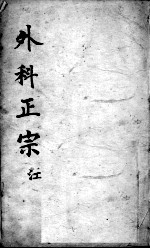 外科正宗